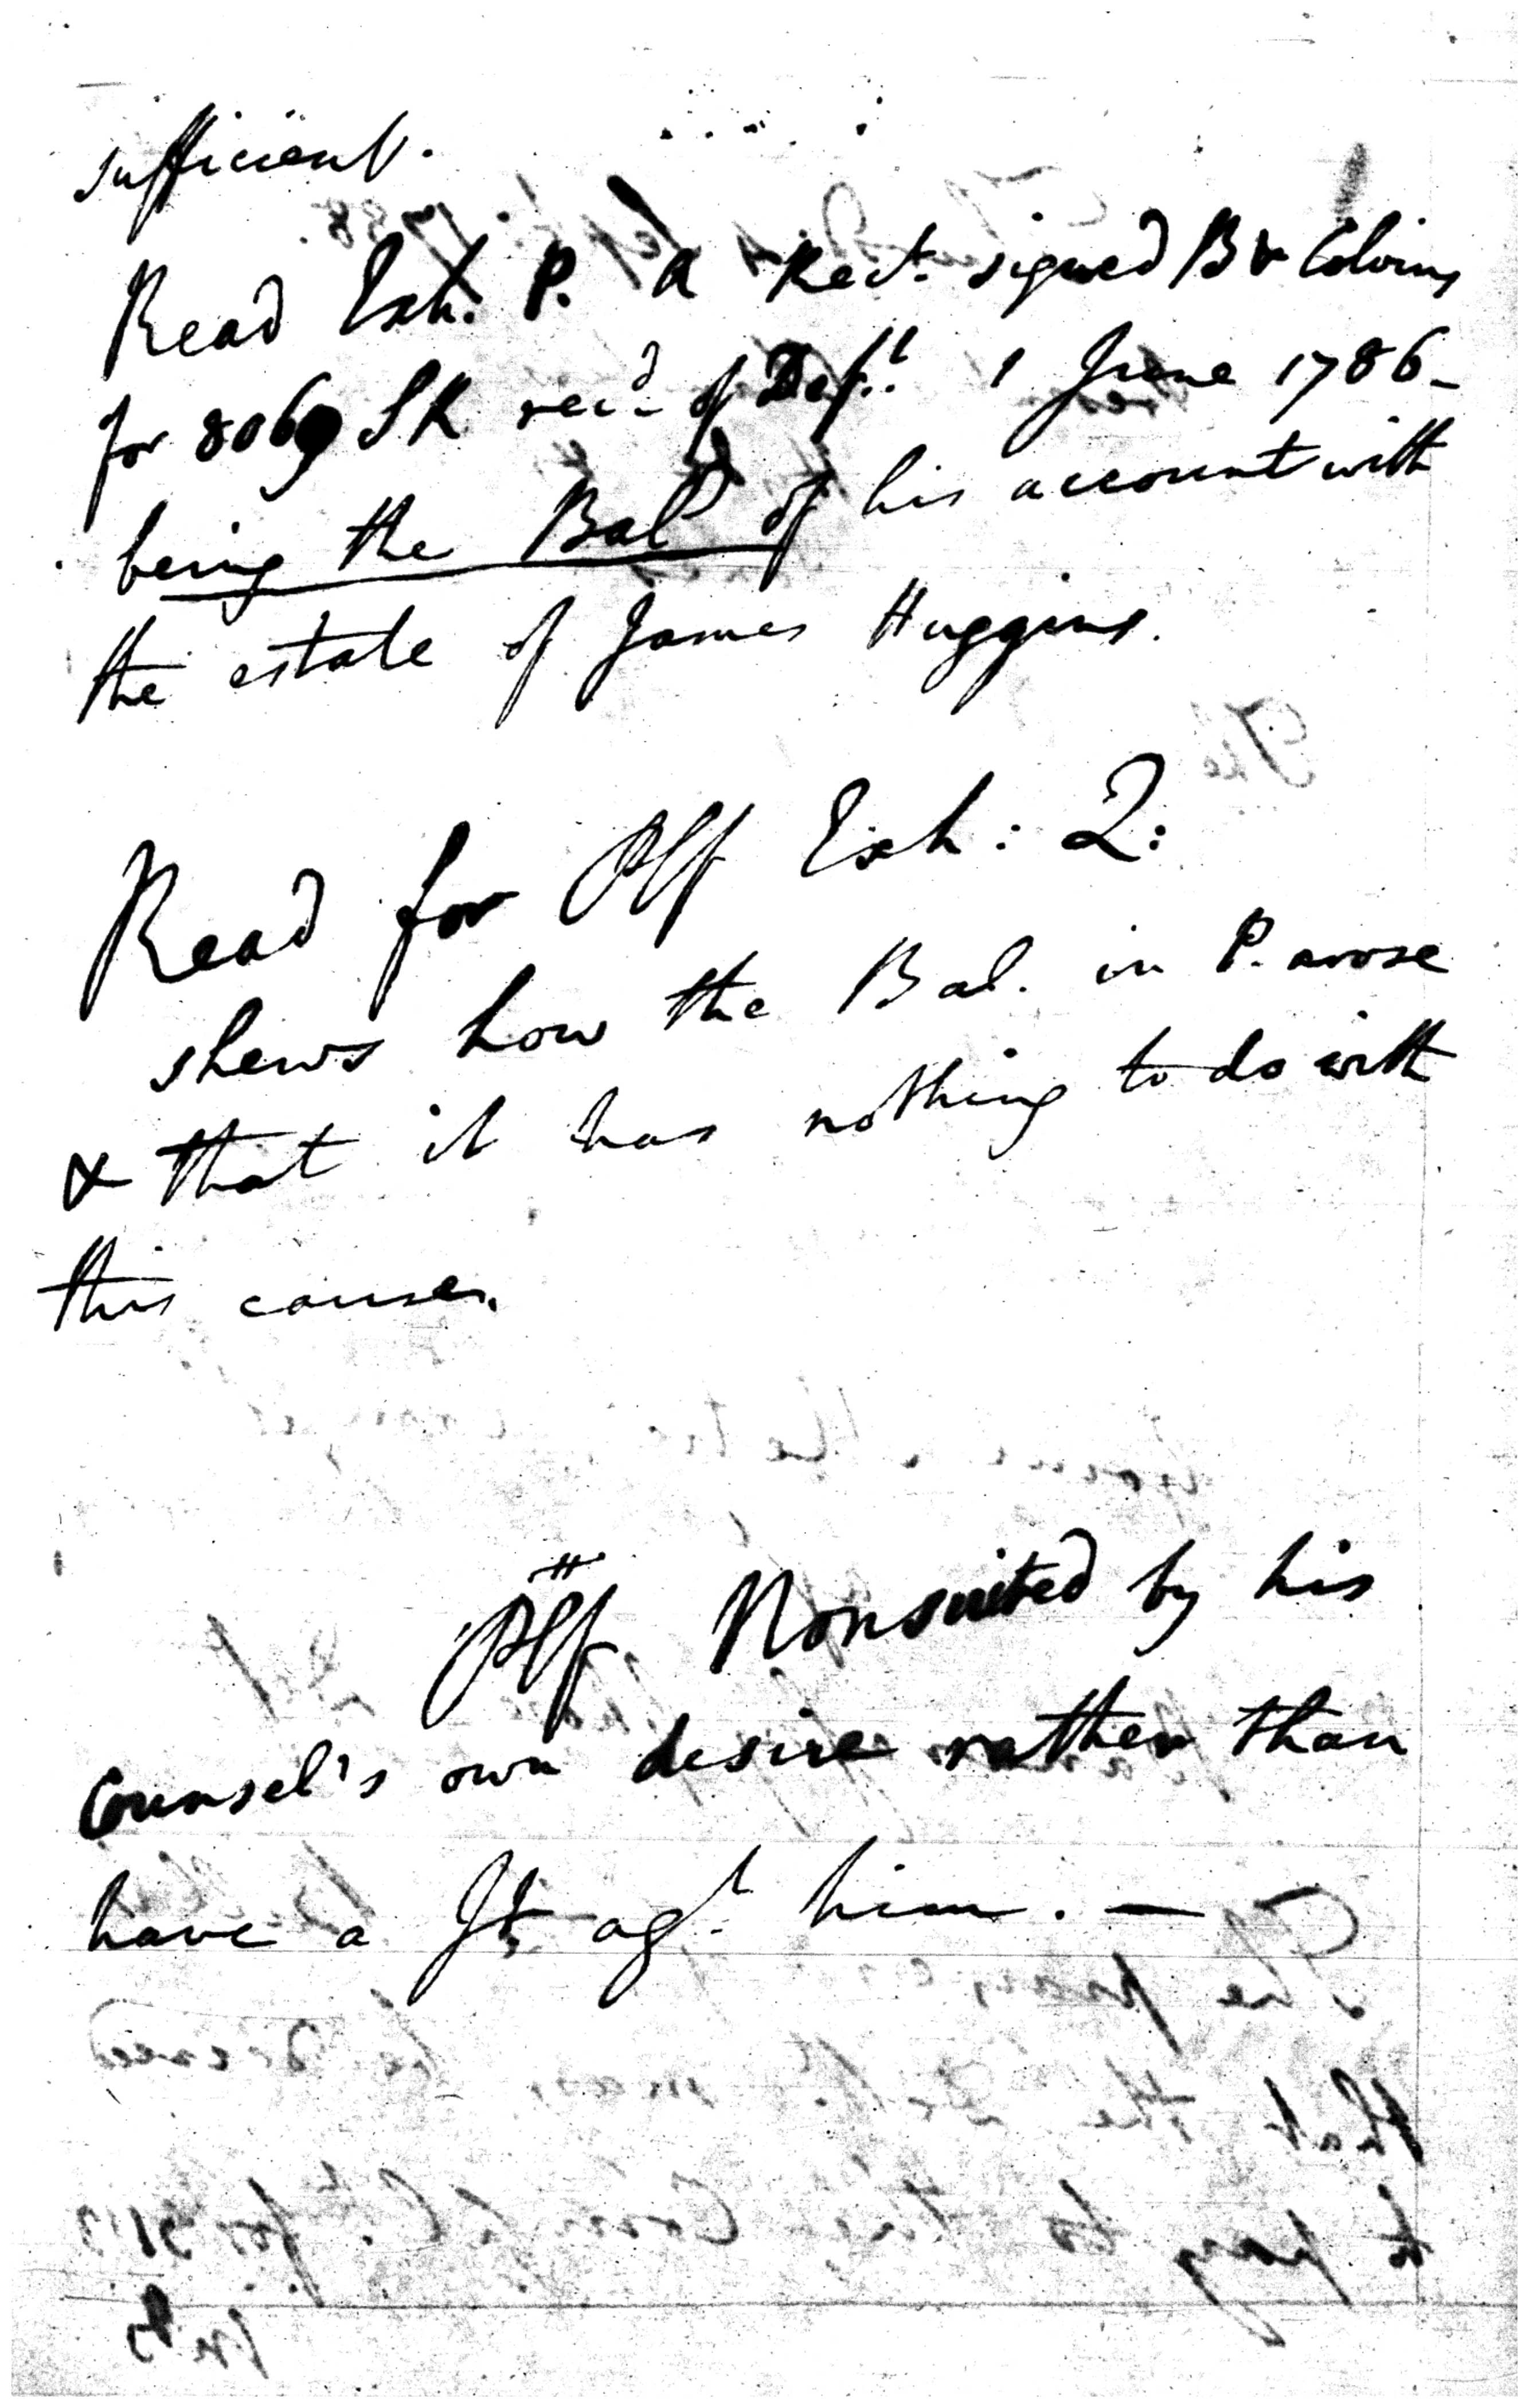 sufficient.
Read Exh. P. a Rect. signed B & Colvins
for 8069 SR recd of Deft. 1 June 1786 –
being the Bal of his account with
the estate of James Huggins.
Read for Plf Exh: Q:
shews how the Bal. in P. arose
& that it has nothing to do with
this cause.
Plf. Nonsuited by his
Counsel's own desire rather than
have a Jt. agt. him. —